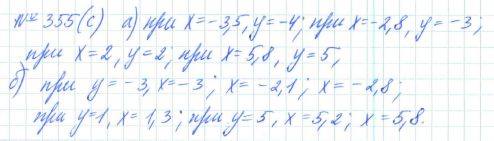 № 355(с) а) при x=-3,5, y=-4; при x=-2,8, y=-3;
при x=2, y=2; при x=5,8, y=5,
б) при y=-3, x=-3; x=-2,1; x=-2,8;
при y=1, x=1,3; при y=5, x=5,2; x=5,8.